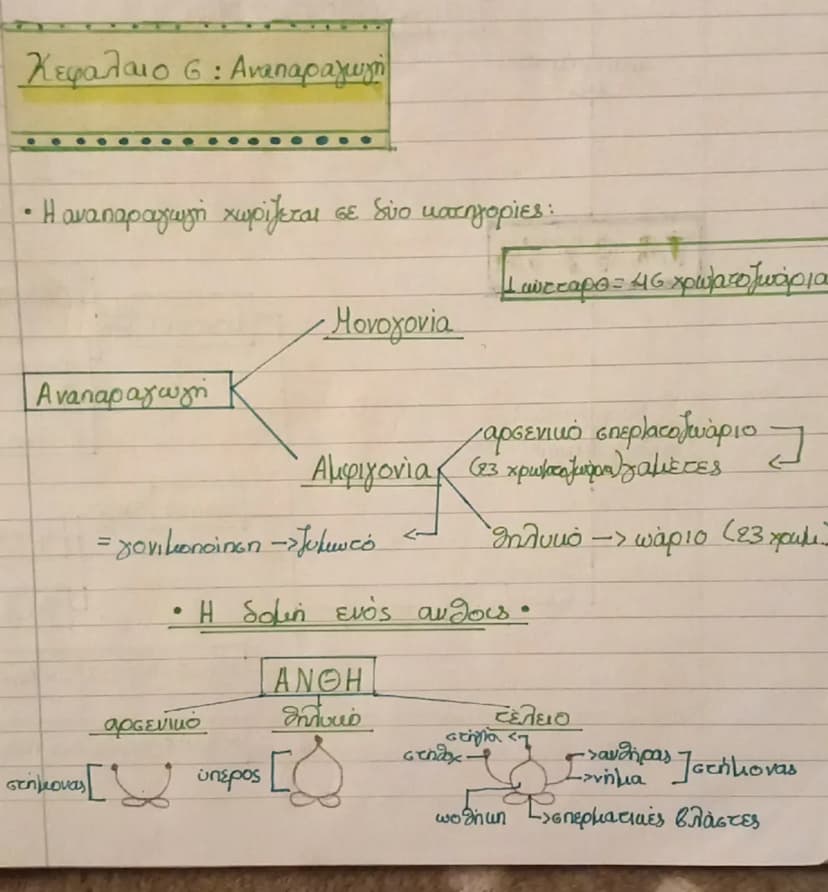 Κεφαλαιο 6 : Αναπαραγωγή
• Η αναπαραγωγή χωρίζεται σε δύο κατηγορίες:
1 κύτταρο = 46 χρωματοζωάρια
Μονογονία
Αναπαραγωγή
αρσενικό σπερματοζωάριο
Αμφιγονία (23 χρωματοζωάρια) γαμέτες
= γονιμοποίηση → ζυγωτό
θηλυκό → ωάριο (23 χρωμ.
• Η δομή ενός ανθους •
ΑΝΘΗ
αρσενικό θηλυκό τέλειο
στίγμα
στύλος ανθήρας
στήμονας ύπερος νήμα στήμονας
ωοθήκη σπερματικές βλάστες